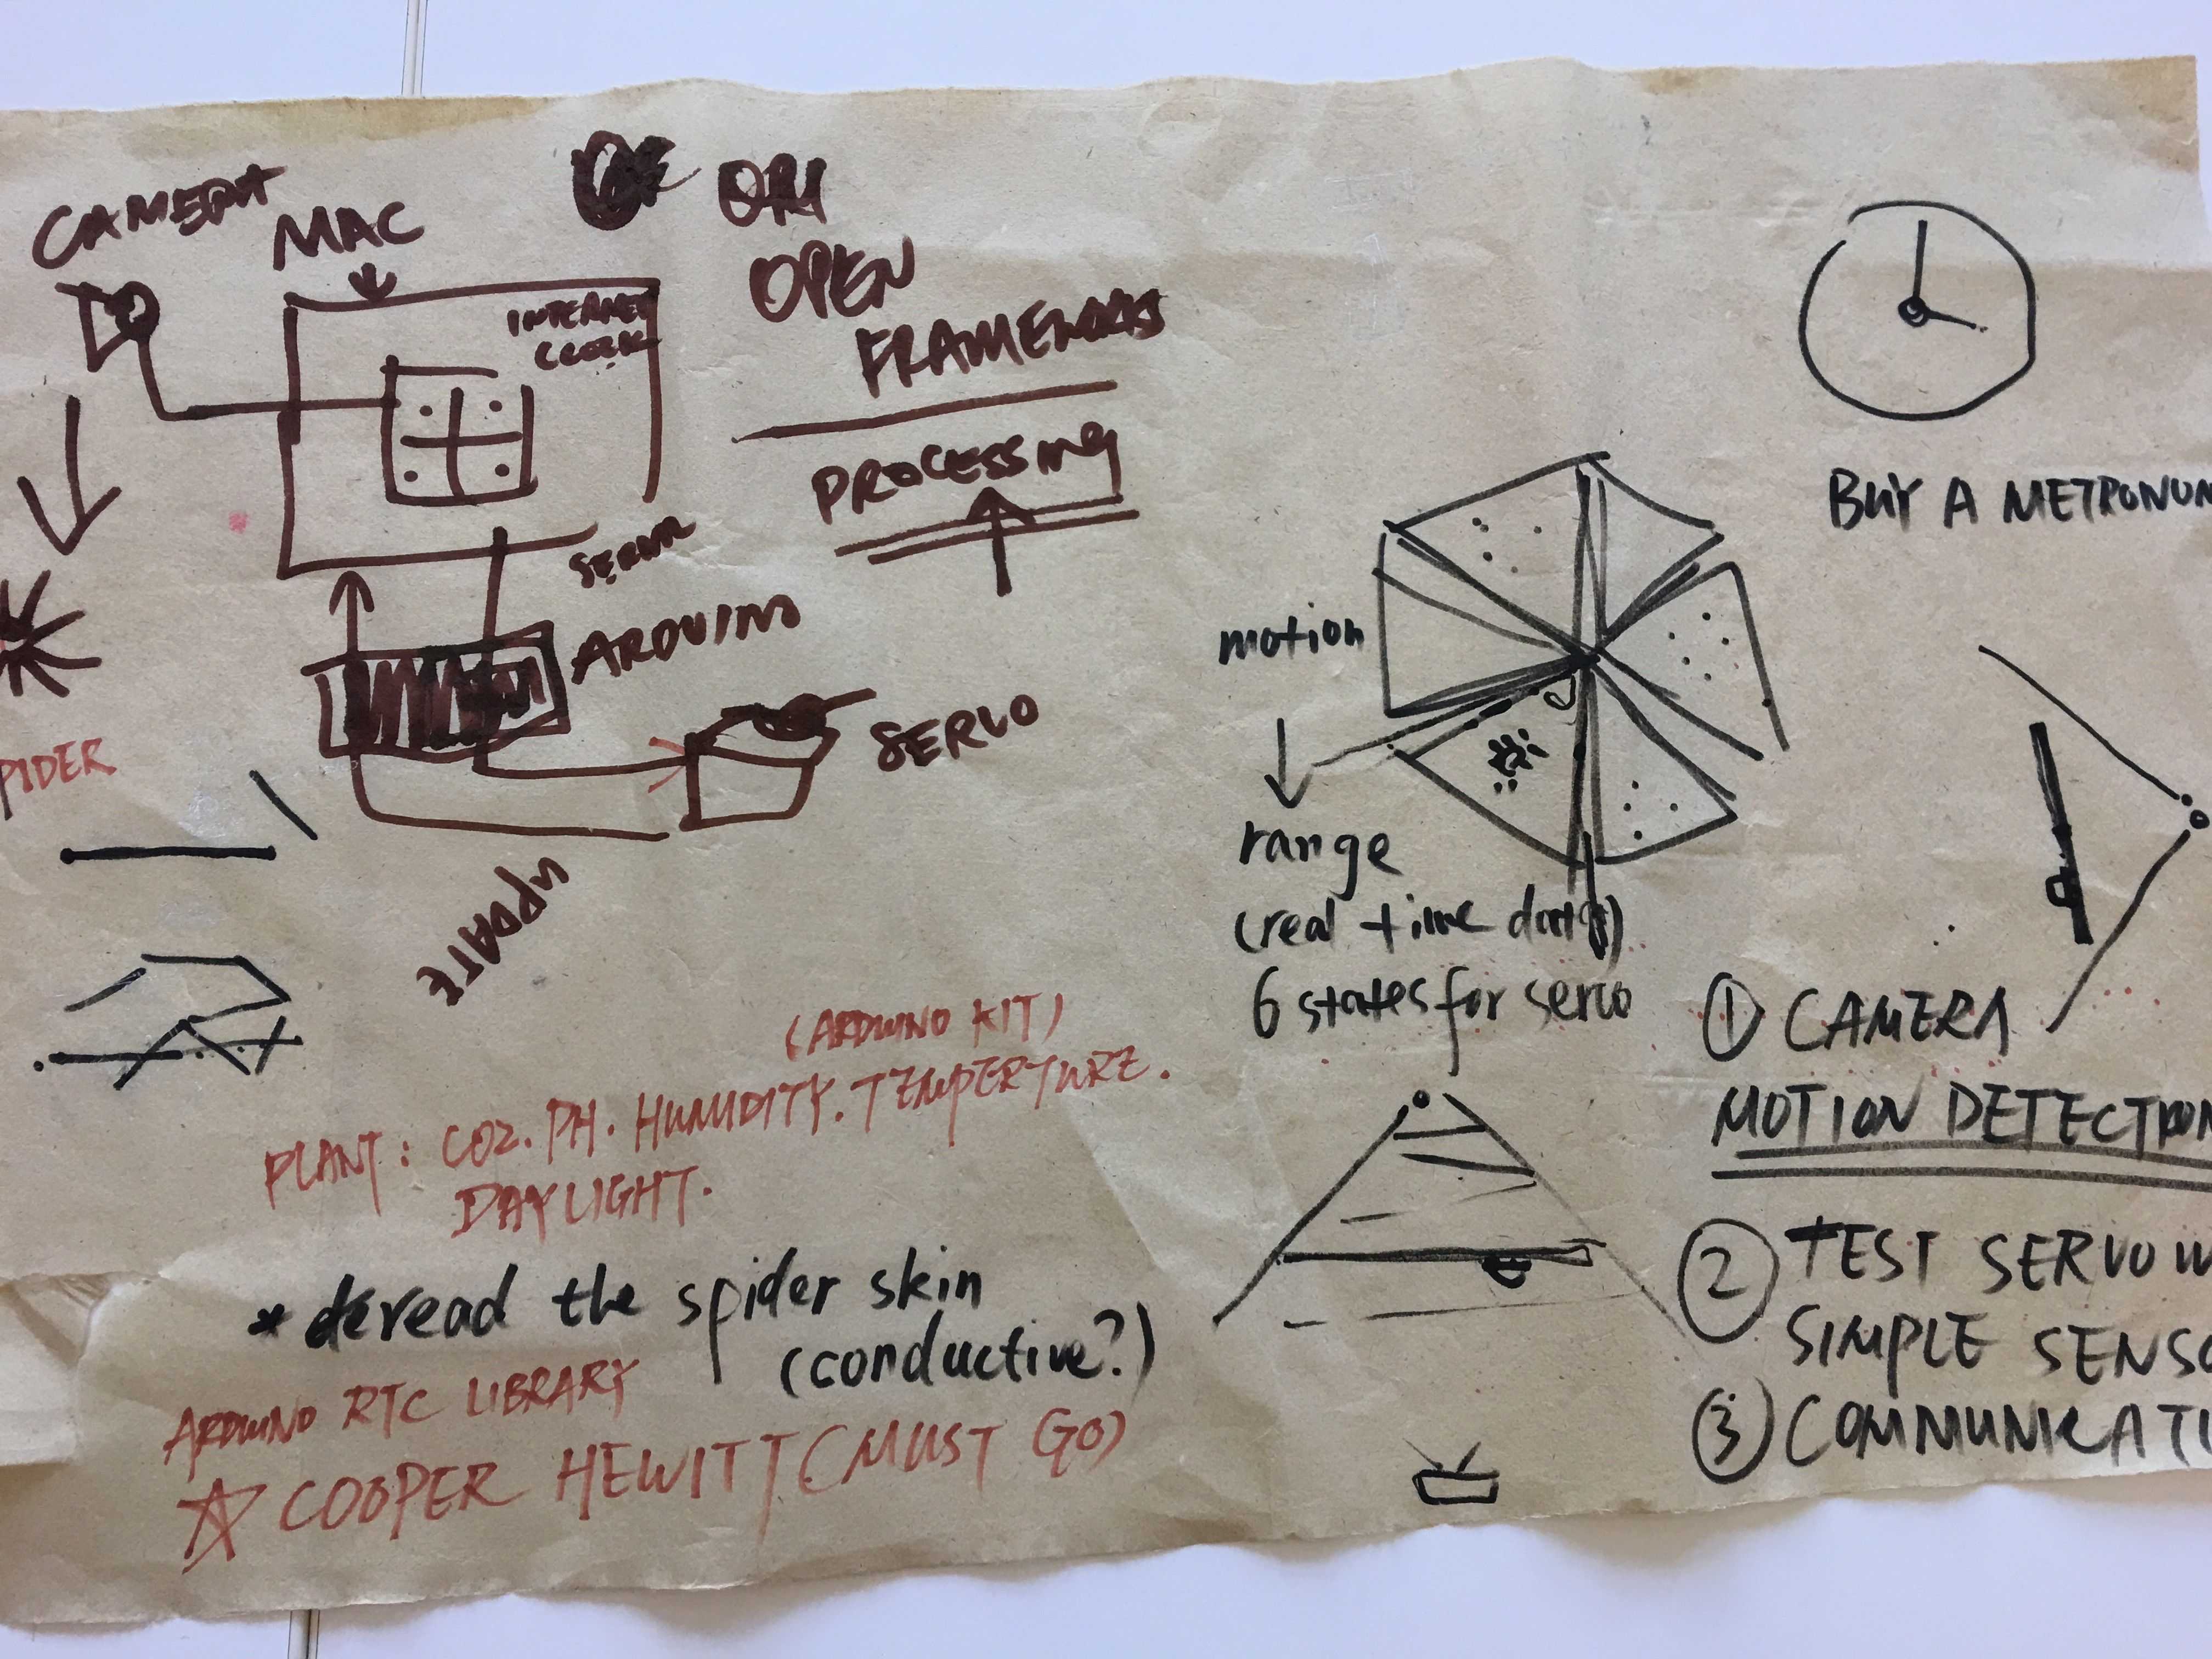 CAMERA
MAC
INTERNET
CLOCK
OPEN
FRAMEWORKS
PROCESSING
ARDUINO
SERVO
UPDATE
PIDER
(ARDUINO KIT)
PLANT: CO2. PH. HUMIDITY. TEMPERTURE.
DAYLIGHT.
* deread the spider skin
(conductive?)
ARDUINO RTC LIBRARY
☆ COOPER HEWITT (MUST GO)
motion
↓
range
(real time data)
6 states for servo
BUY A METRONOM
① CAMERA
MOTION DETECTION
② TEST SERVO W
SIMPLE SENSO
③ COMMUNICATI